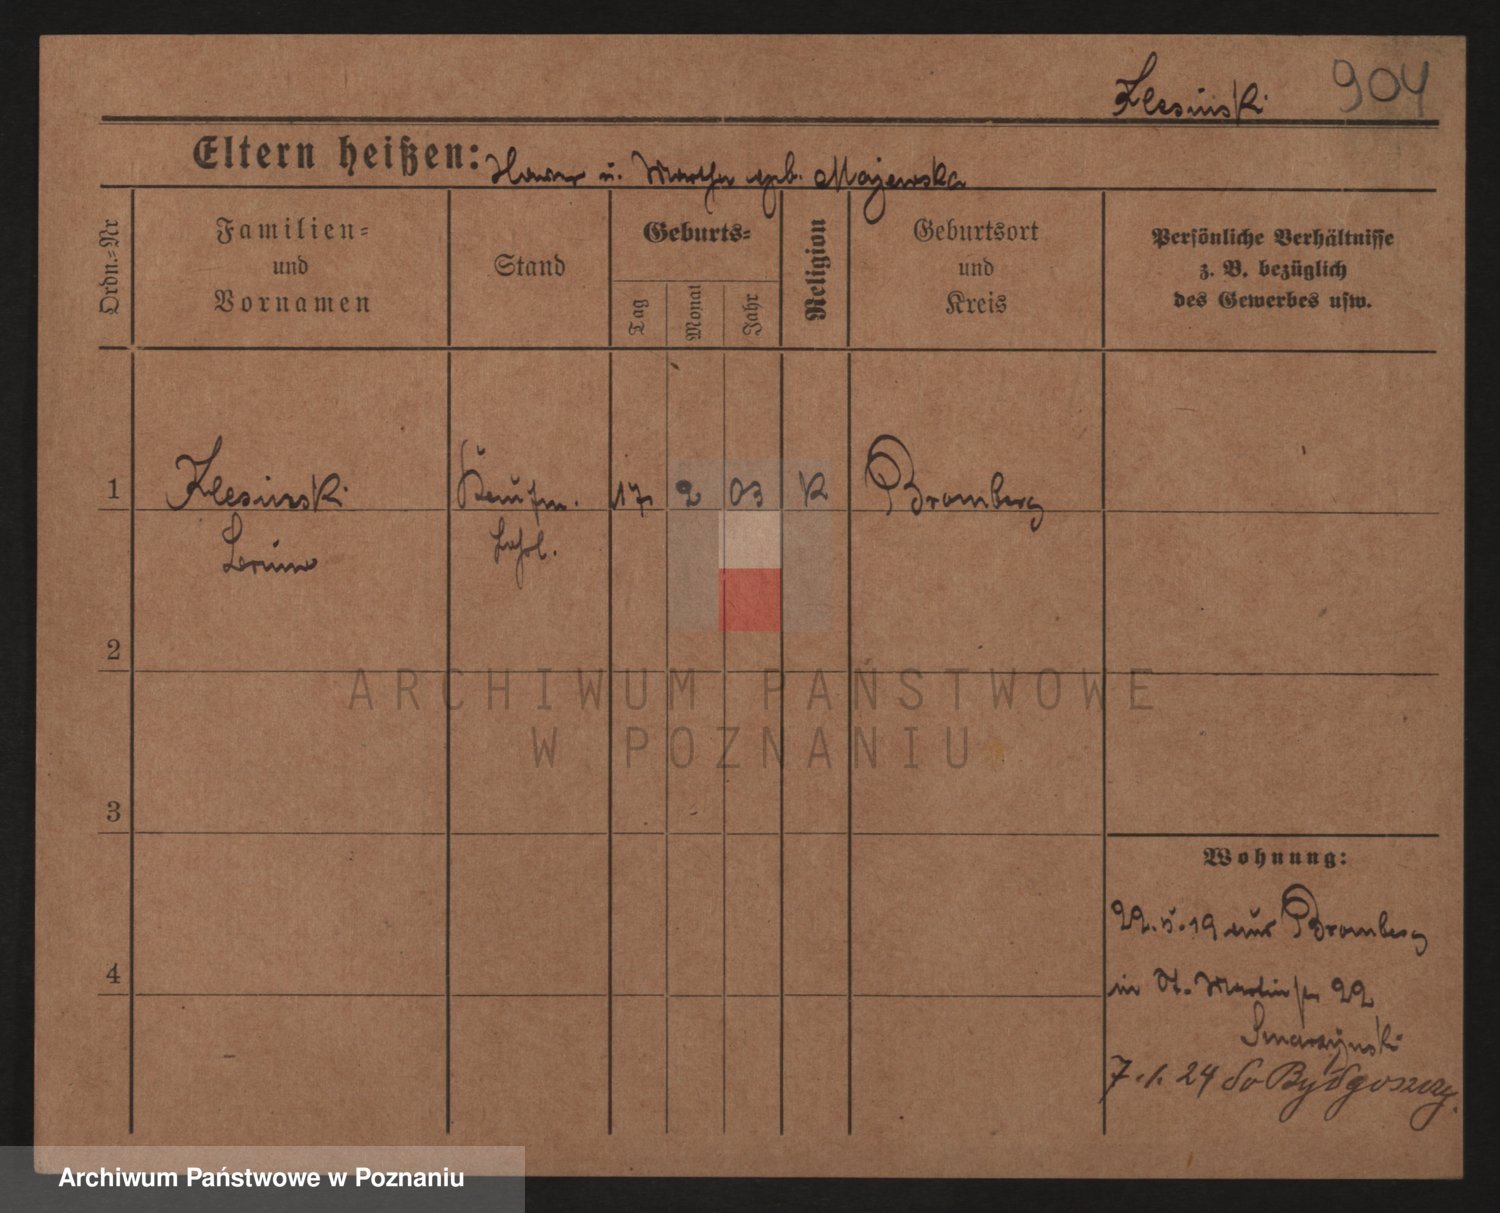 904
Klesinski
Eltern heißen: u. Martha geb. Majewska
Ordn.-Nr
Familien-
und
Vornamen
Stand
Geburts-
Tag
Monat
Jahr
Religion
Geburtsort
und
Kreis
Persönliche Verhältnisse
z. B. bezüglich
des Gewerbes usw.
1 Klesinski Kaufm. 17 2 03 K Bromberg
Lehrl.
2
3
4
Wohnung:
22.5.19 aus Bromberg
in St. Martinstr 22
7.1.24 do Bydgoszczy.
ARCHIWUM PAŃSTWOWE
W POZNANIU
Archiwum Państwowe w Poznaniu